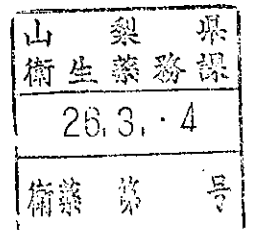 山梨県
衛生薬務課
26.3.-4
衛薬第号